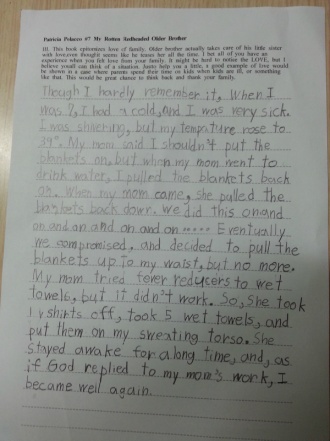 Patricia Polacco #7 My Rotten Redheaded Older Brother
III. This book epitomizes love of family. Older brother actually takes care of his little sister
with love,even thought seems like he teases her all the time. I bet all of you have an
experience when you felt love from your family. It might be hard to notice the LOVE, but I
believe youall can think of a situation. Justto help you a little, a good example of love would
be shown in a case where parents spend their time on kids when kids are ill, or something
like that. This would be your great chance to think back and thank your family.
Though I hardly remember it, When I
was 7, I had a cold, and I was very sick.
I was shivering, but my tempature rose to
39°. My mom said I shouldn't put the
blankets on, but when my mom went to
drink water, I pulled the blankets back
on. When my mom came, she pulled the
blankets back down. We did this on and
on and on and on and on ..... Eventually
we compromised, and decided to pull the
blankets up to my waist, but no more.
My mom tried fever reducers to wet
towels, but it didn't work. So, she took
my shirts off, took 5 wet towels, and
put them on my sweating torso. She
stayed awake for a long time, and, as
if God replied to my mom's work, I
became well again.